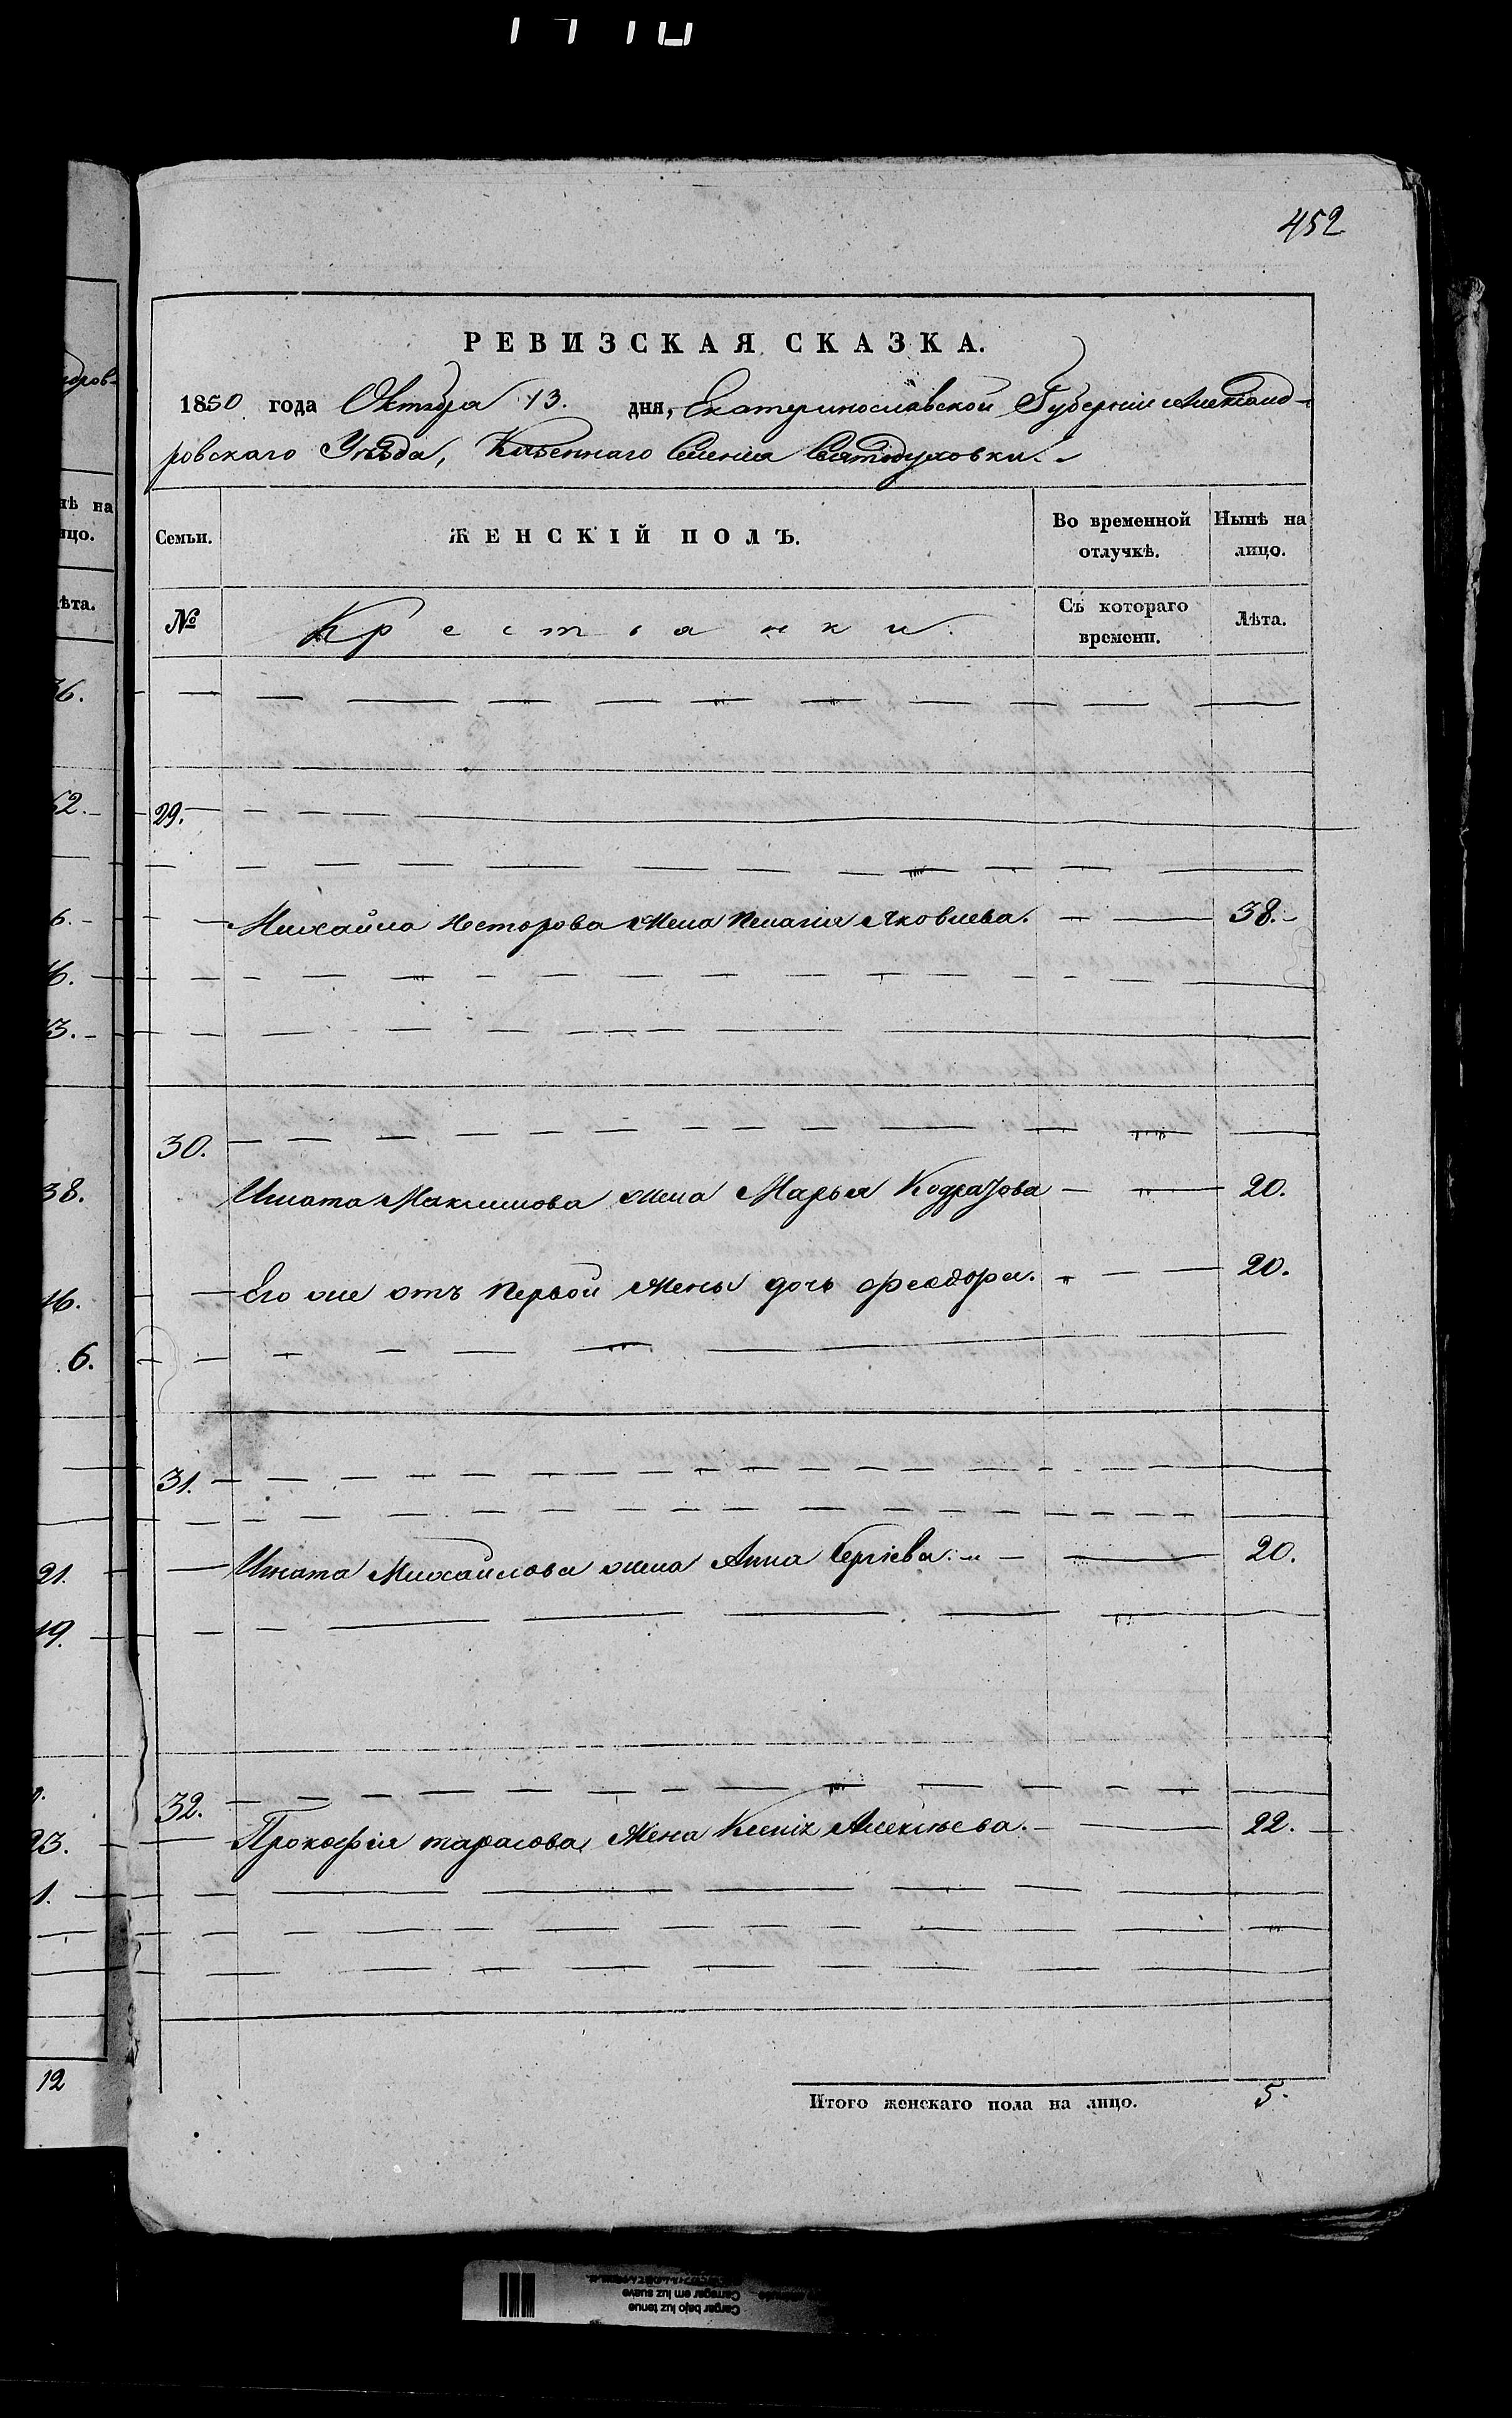 452
РЕВИЗСКАЯ СКАЗКА.
1850 года Октября 13. дня, Екатеринославской Губерніи Александ-
ровскаго Уѣзда, Казеннаго Селенія Святодуховки.
Семьи. ЖЕНСКІЙ ПОЛЪ. Во временной отлучкѣ. Нынѣ на лицо.
№ Крестьянки. Съ котораго времени. Лѣта.
29.
Михайла Несторова жена Пелагія Яковлева. 38.
30.
Игната Максимова жена Марья Кодратова 20.
Его же отъ первой жены дочь Феодора. 20.
31.
Игната Михайлова жена Анна Сергіева. 20.
32.
Прокофія Тарасова жена Ксенія Алексѣева. 22.
Итого женскаго пола на лицо. 5.
нѣ на
ицо.
ѣта.
36.
52.
6.
16.
13.
38.
16.
6.
21.
19.
23.
1.
12
Cargar bajo luz tenue
Carregar em luz suave